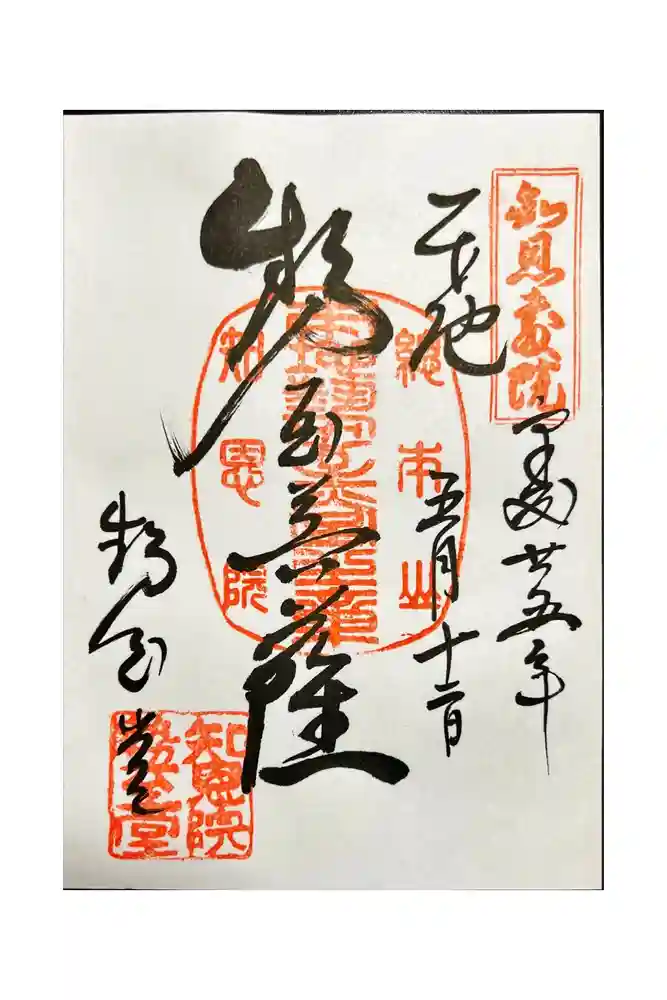 知恩教院
平成廿五年
五月十二日
總本山
勢至菩薩
知恩院
勢至堂
知恩院
勢至堂